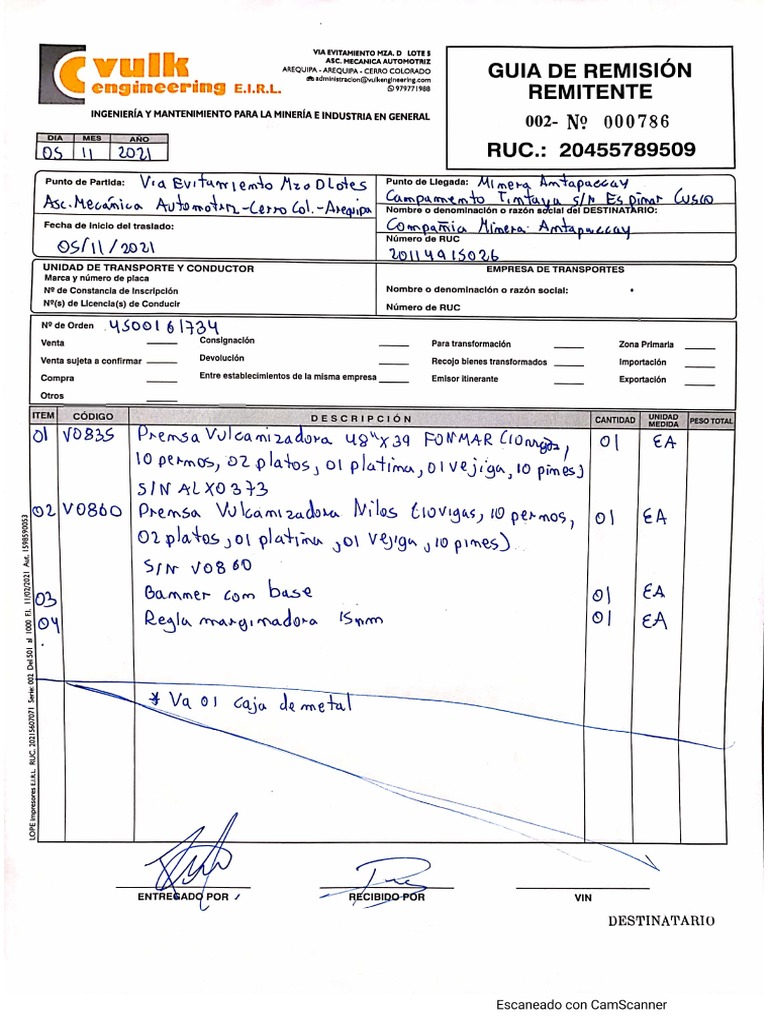 vulk
engineering E.I.R.L.
VIA EVITAMIENTO MZA. D LOTE 5
ASC. MECANICA AUTOMOTRIZ
AREQUIPA - AREQUIPA - CERRO COLORADO
administracion@vulkengineering.com
979771988
INGENIERÍA Y MANTENIMIENTO PARA LA MINERÍA E INDUSTRIA EN GENERAL
GUIA DE REMISIÓN
REMITENTE
002- Nº 000786
RUC.: 20455789509
DIA MES AÑO
05 11 2021
Punto de Partida: Via Evitamiento Mza D Lote5
Asc. Mecánica Automotriz-Cerro Col.-Arequipa
Fecha de Inicio del traslado:
05/11/2021
Punto de Llegada: Minera Antapaccay
Campamento Tintaya s/n Espinar Cusco
Nombre o denominación o razón social del DESTINATARIO:
Compañia Minera Antapaccay
Número de RUC
20114915026
UNIDAD DE TRANSPORTE Y CONDUCTOR
Marca y número de placa
Nº de Constancia de Inscripción
Nº(s) de Licencia(s) de Conducir
EMPRESA DE TRANSPORTES
Nombre o denominación o razón social:
Número de RUC
Nº de Orden 4500161734
Venta Consignación Para transformación Zona Primaria
Venta sujeta a confirmar Devolución Recojo bienes transformados Importación
Compra Entre establecimientos de la misma empresa Emisor itinerante Exportación
Otros
ITEM CÓDIGO DESCRIPCIÓN CANTIDAD UNIDAD MEDIDA PESO TOTAL
01 V0835 Prensa Vulcanizadora 48"x39 FONMAR (10 vigas, 01 EA
10 pernos, 02 platos, 01 platina, 01 vejiga, 10 pines)
S/N ALX0373
02 V0860 Prensa Vulcanizadora Nilos (10 vigas, 10 pernos, 01 EA
02 platos, 01 platina, 01 vejiga, 10 pines)
S/N V0860
03 Banner con base 01 EA
04 Regla marginadora 15mm 01 EA
* Va 01 caja de metal
LOPE Impresores E.I.R.L. RUC. 20215607071 Serie: 002 Del 501 al 1000 F.I. 11/02/2021 Aut. 1598590053
ENTREGADO POR RECIBIDO POR VIN
DESTINATARIO
Escaneado con CamScanner